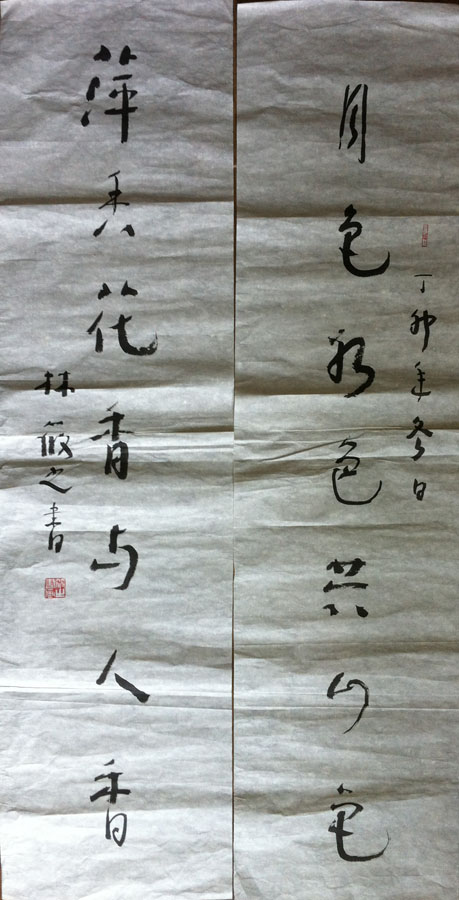 丁卯年冬日
月色色共山色
萍香花香与人香
林筱之書